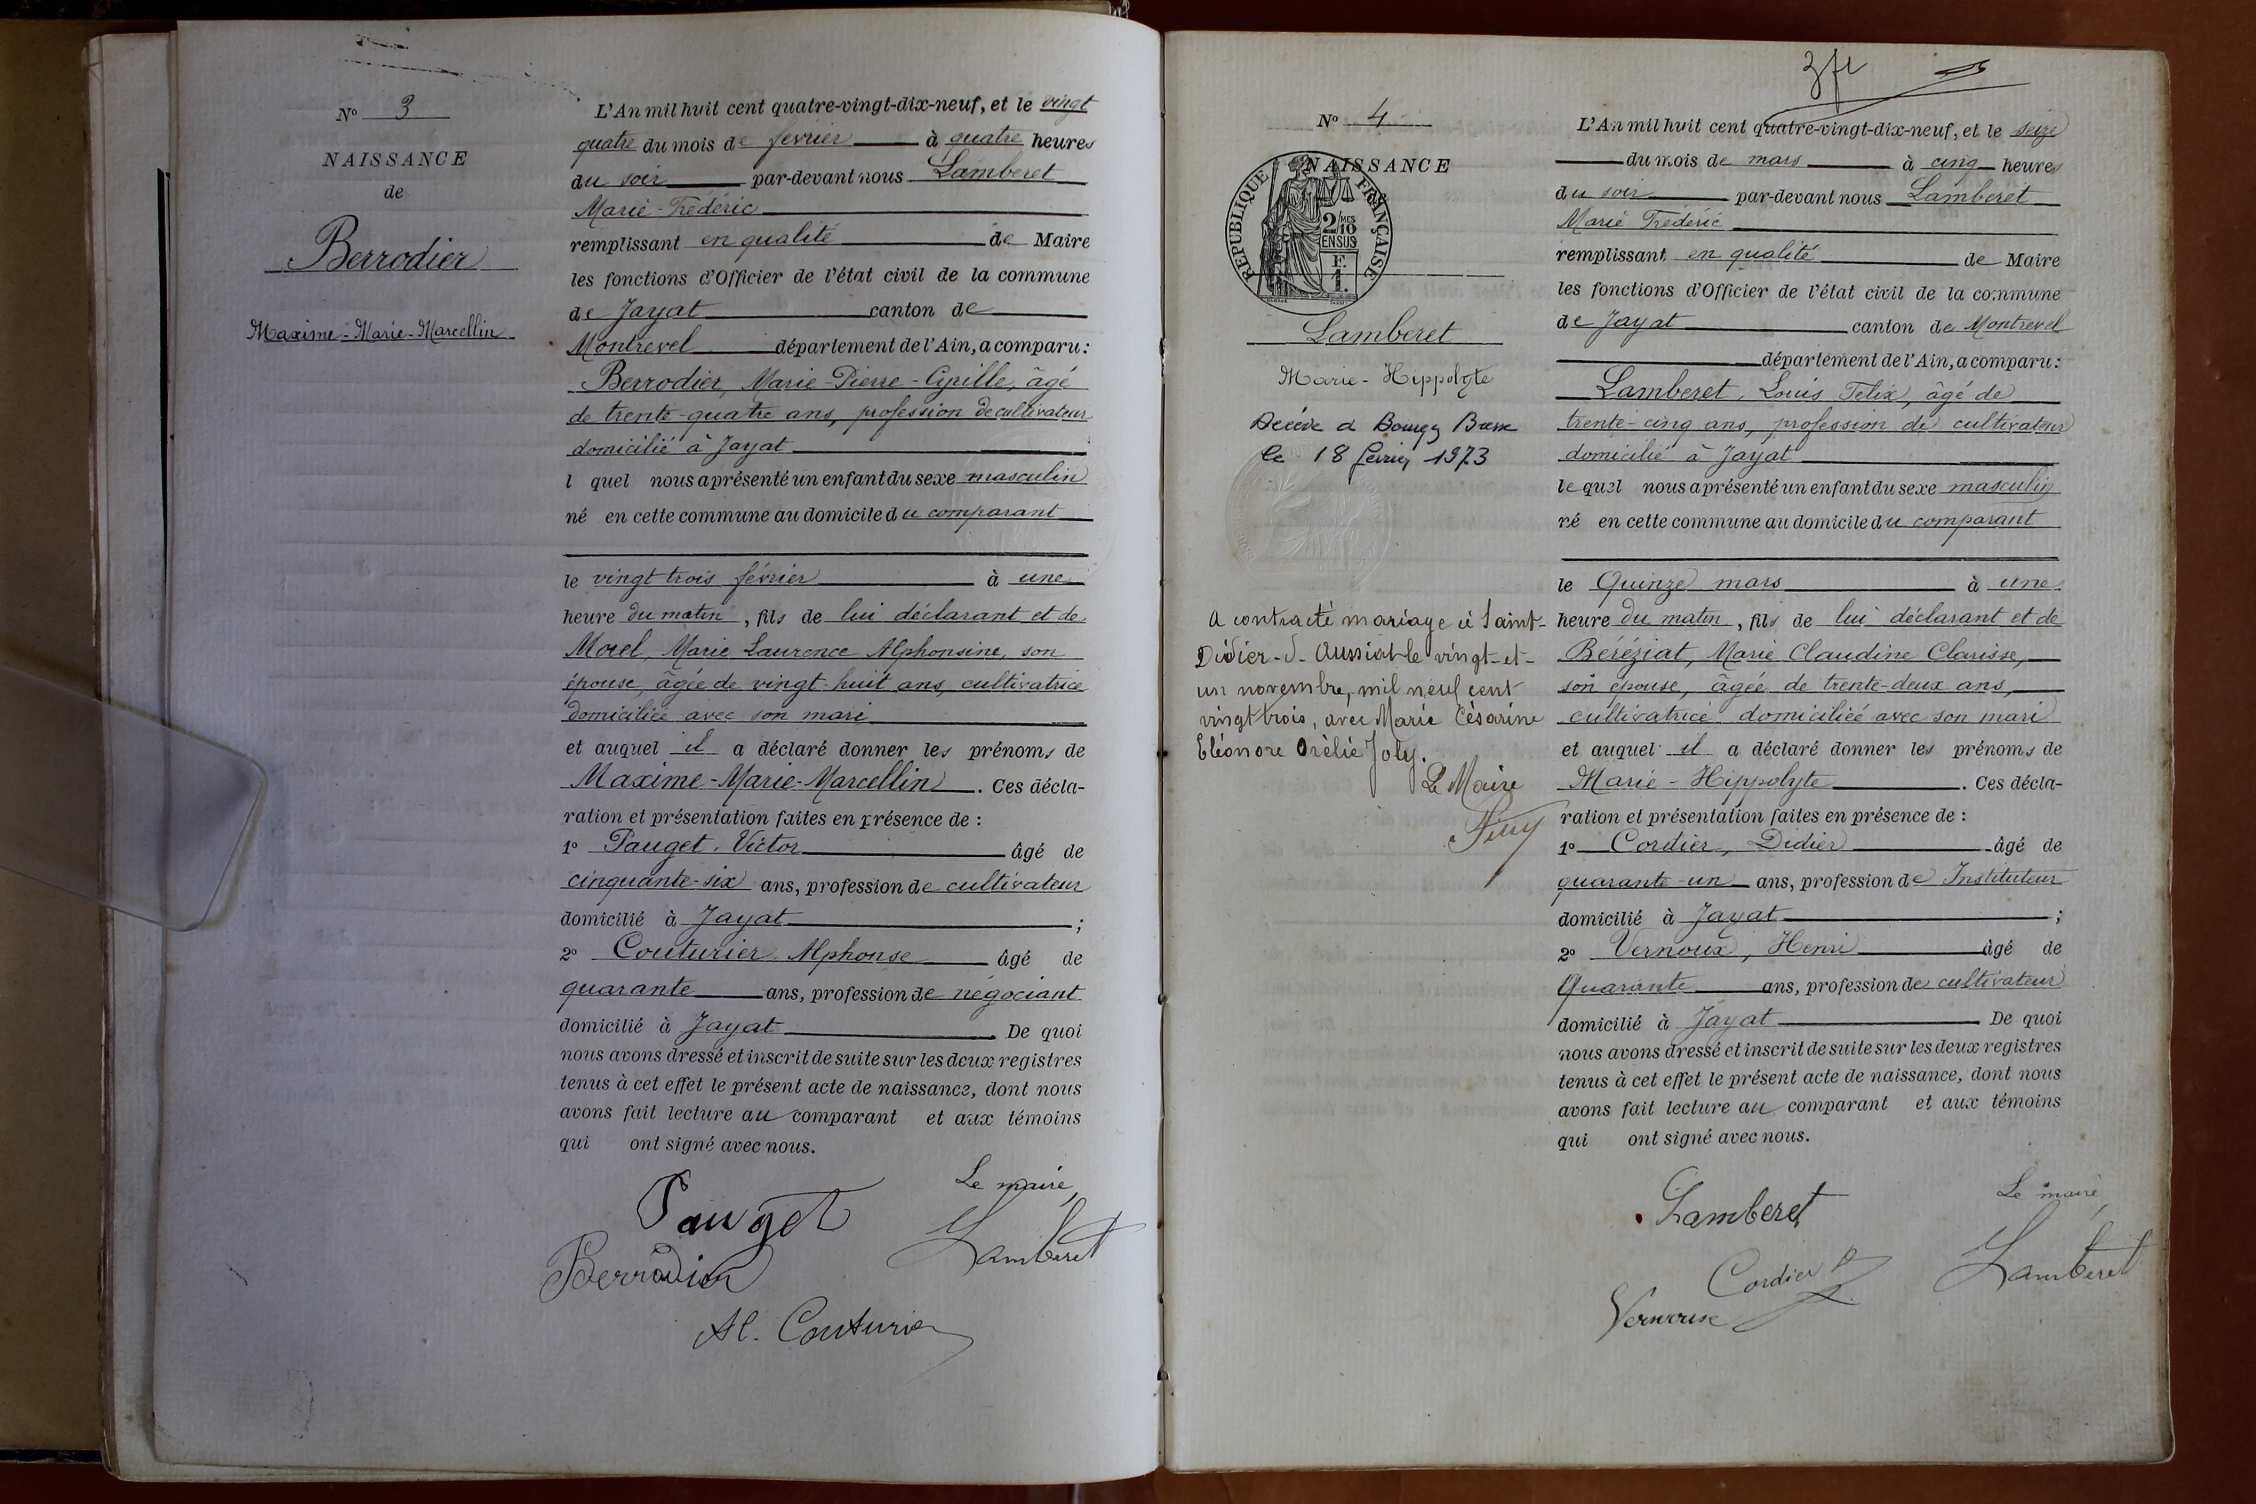 Nº 3
NAISSANCE
de
Berrodier
Maxime-Marie-Marcellin
L'An mil huit cent quatre-vingt-dix-neuf, et le vingt
quatre du mois de février à quatre heures
du soir par-devant nous Lamberet
Marie-Frédéric
remplissant en qualité de Maire
les fonctions d'Officier de l'état civil de la commune
de Jayat canton de
Montrevel département de l'Ain, a comparu :
Berrodier, Marie-Pierre-Cyrille, âgé
de trente-quatre ans, profession de cultivateur
domicilié à Jayat
l quel nous a présenté un enfant du sexe masculin
né en cette commune au domicile du comparant
le vingt trois février à une
heure du matin, fils de lui déclarant et de
Morel, Marie Laurence Alphonsine, son
épouse, âgée de vingt-huit ans, cultivatrice
domiciliée avec son mari
et auquel il a déclaré donner les prénoms de
Maxime-Marie-Marcellin. Ces décla-
ration et présentation faites en présence de :
1º Pauget, Victor âgé de
cinquante-six ans, profession de cultivateur
domicilié à Jayat ;
2º Couturier Alphonse âgé de
quarante ans, profession de négociant
domicilié à Jayat. De quoi
nous avons dressé et inscrit de suite sur les deux registres
tenus à cet effet le présent acte de naissance, dont nous
avons fait lecture au comparant et aux témoins
qui ont signé avec nous.
Le maire,
Pauget
Lamberet
Berrodier
Al. Couturier
3fl
Nº 4
NAISSANCE
REPUBLIQUE FRANÇAISE
2/10 MES
EN SUS
F.
1.
Lamberet
Marie-Hippolyte
Décédé à Bourg en Bresse
le 18 février 1973
A contracté mariage à Saint-
Didier-d-Aussiat le vingt-et-
un novembre, mil neuf cent
vingt trois, avec Marie Césarine
Eléonore Orélie Joly.
Le Maire
L'An mil huit cent quatre-vingt-dix-neuf, et le seize
du mois de mars à cinq heures
du soir par-devant nous Lamberet
Marie Frédéric
remplissant en qualité de Maire
les fonctions d'Officier de l'état civil de la commune
de Jayat canton de Montrevel
département de l'Ain, a comparu :
Lamberet, Louis Félix, âgé de
trente-cinq ans, profession de cultivateur
domicilié à Jayat
lequel nous a présenté un enfant du sexe masculin
né en cette commune au domicile du comparant
le Quinze mars à une
heure du matin, fils de lui déclarant et de
Béréziat, Marie Claudine Clarisse,
son épouse, âgée de trente-deux ans,
cultivatrice domiciliée avec son mari
et auquel il a déclaré donner les prénoms de
Marie-Hippolyte. Ces décla-
ration et présentation faites en présence de :
1º Cordier, Didier âgé de
quarante-un ans, profession de Instituteur
domicilié à Jayat ;
2º Vernoux, Henri âgé de
Quarante ans, profession de cultivateur
domicilié à Jayat De quoi
nous avons dressé et inscrit de suite sur les deux registres
tenus à cet effet le présent acte de naissance, dont nous
avons fait lecture au comparant et aux témoins
qui ont signé avec nous.
Le maire,
Lamberet
Lamberet
Cordier D
Vernoux